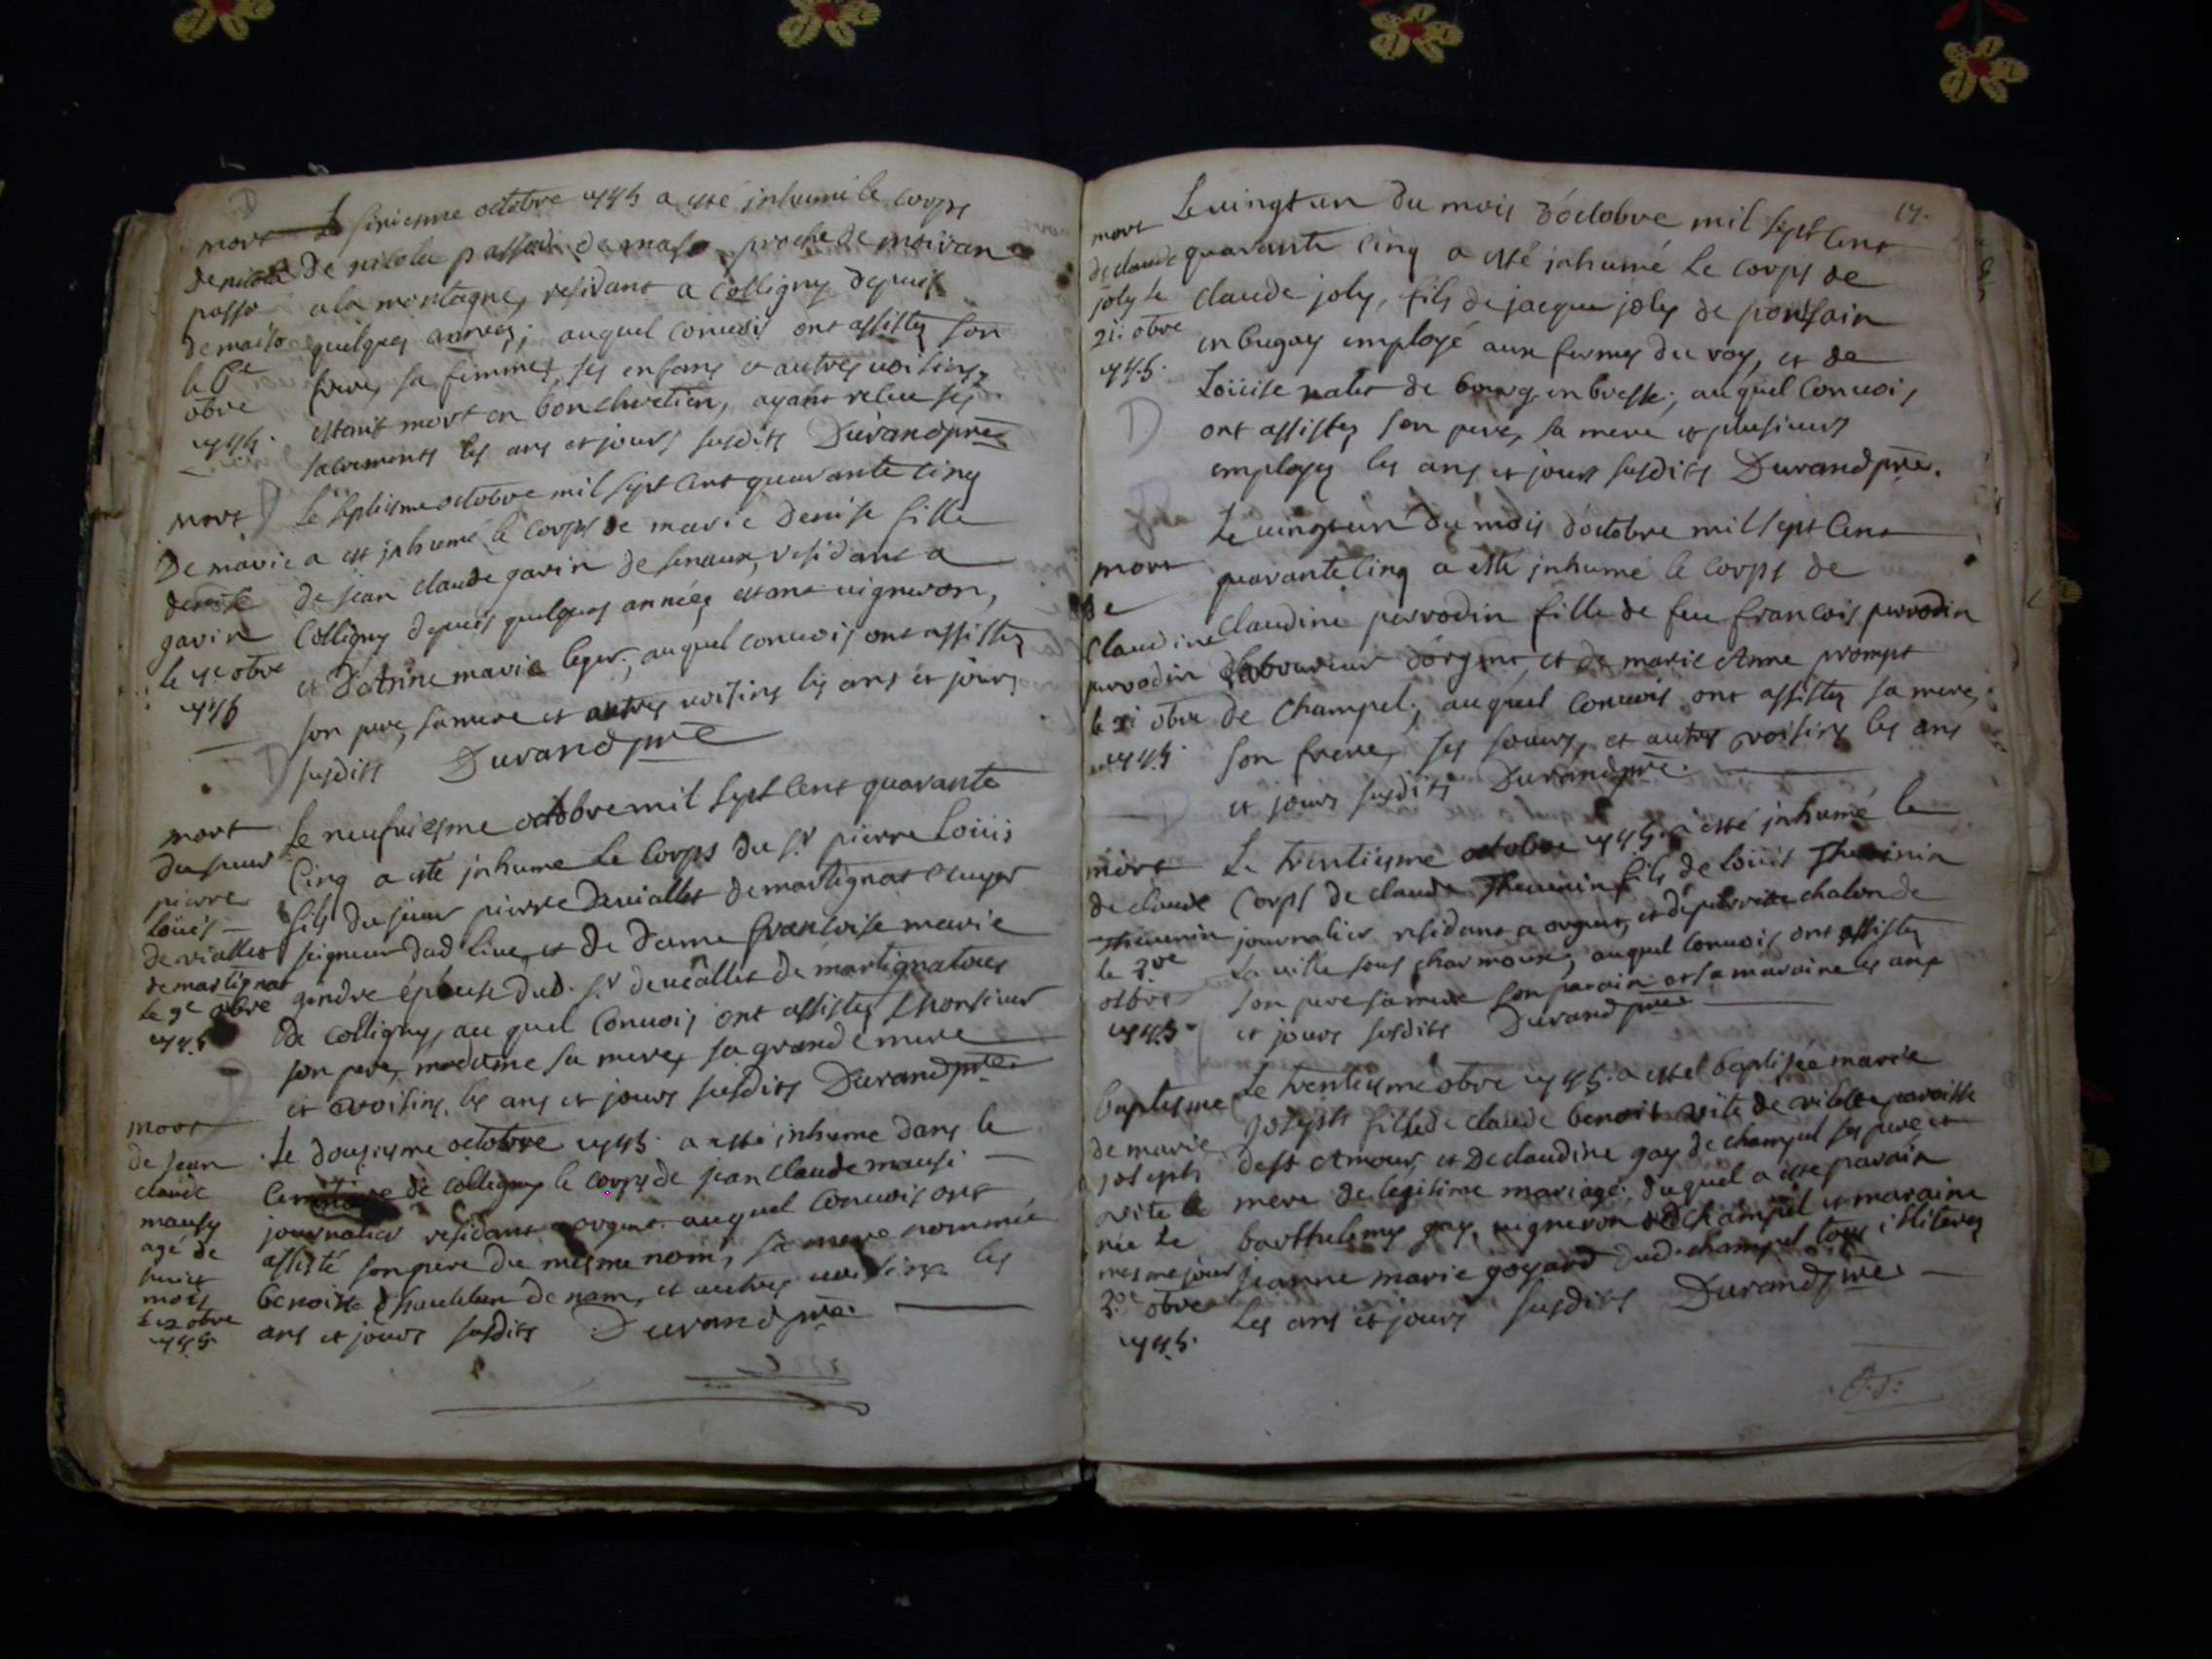 mort Le sixiesme octobre 1745 a esté inhumé le corps
de nicola de nicola passo de proche de moiran
passo a la montagne, residant a Colligny depuis
quelques années; auquel convoi ont assistez son
le 6e frere, sa femme, ses enfans et autres voisins,
obre estant mort en bon chretien, ayant receu ses
1745. sacrements les ans et jours susdits Durand pre
mort Le septiesme octobre mil sept cent quarante cinq
De marie a est inhumé le corps de marie denise fille
denise de jean claude gavin de senaux, residant a
gavin Colligny depuis quelques années estant vigneron,
le 7e obre et marie leger; auquel convois ont assistez
1745 son pere, sa mere et autres voisins les ans et jours
susdits Durand pre
mort Le neufviesme octobre mil sept cent quarante
du sieur Cinq a esté inhumé Le Corps du sr pierre Loüis
pierre fils du sieur pierre Devialles de martignat ecuyer
loüis seigneur dud lieu, et de Dame francoise marie
de vialles
de martignat gindre épouse dud. sr de vialles de martignat tous
le 9e obre de colligny, au quel Convois ont assistez Monsieur
1745 son pere, madame sa mere, sa grande mere
et voisins, les ans et jours susdits Durand pre
mort Le dousiesme octobre 1745. a esté inhumé dans le
de jean Cemetiere de colligny le corps de jean claude mausi
claude journalier residant a orgent. auquel Convois ont
mausy assisté son pere du mesme nom, sa mere nommée
agé de benoiste de nam, et autres voisins les
mois ans et jours susdits Durand pre
le 12 obre
1745
17.
Le vingt un du mois d'octobre mil sept cent
mort quarante cinq a esté inhumé Le corps de
de claude claude joly, fils de jacque joly de ponsain
joly le en bugay employé aux fermes du roy, et de
21. obre Loüise nater de bourg en bresse; auquel Convois
1745. ont assistez son pere, sa mere et plusieurs
employez les ans et jours susdits Durand pre.
Le vingt un du mois d'octobre mil sept cent
mort quarante cinq a esté inhumé le corps de
de claudine perrodin fille de feu francois perrodin
claudine laboureur d'orgent et de marie Anne prompt
perrodin de Champel; auquel Convois ont assistez sa mere,
le 21 obre son frere, ses soeurs, et autres voisins les ans
1745. et jours susdits Durand pre.
mort Le trentiesme octobre 1745. a esté inhumé le
de claude Corps de claude Thevenin fils de loüis Thevenin
thevenin journalier residant a orgent, et de chalon de
le 30e La ville sous charmoux, auquel Convois ont assistez
obre son pere sa mere son parain et sa maraine les ans
1745. et jours susdits Durand pre
baptesme Le trentiesme obre 1745. a esté baptisée marie
de marie joseph fille de claude benoit vite de paroisse
joseph de st Amour, et De claudine gay de champel ses pere et
vite mere de legitime mariage; duquel a esté parain
née le barthelemy gay, vigneron de champel et maraine
mesme jour jeanne marie goyard dud. champel tous illiteres
30e obre Les ans et jours susdits Durand pre
1745.